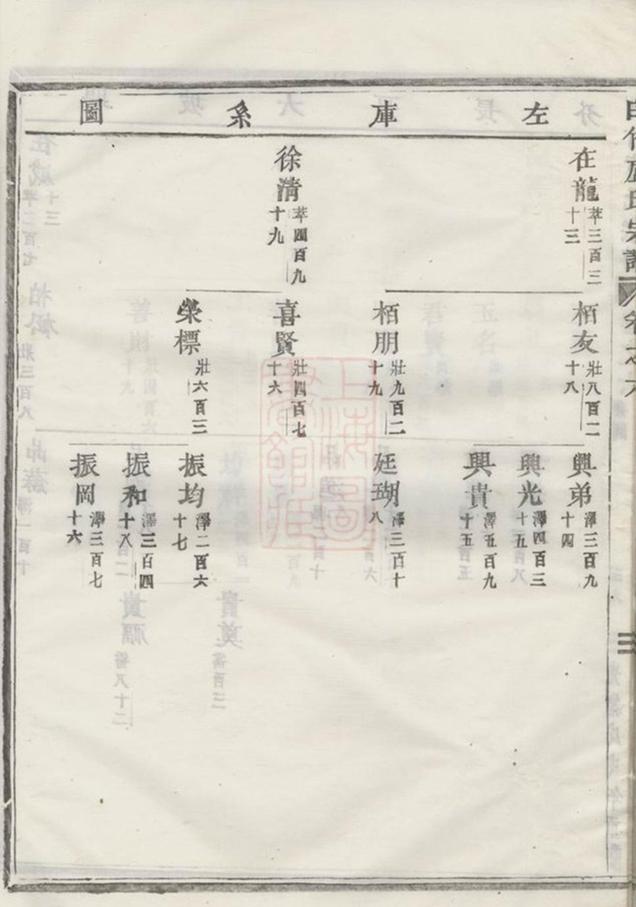 左庫系圖
在龍 萃三百三
十三
徐淸 萃四百九
十九
栢友 壯八百二
十八
栢朋 壯九百二
十九
喜賢 壯四百七
十六
榮標 壯六百三
興弟 澤三百九
十四
興光 澤四百三
十五
興貴 澤五百九
十五
廷瑚 澤三百十
八
振均 澤二百六
十七
振和 澤三百四
十八
振岡 澤三百七
十六
三